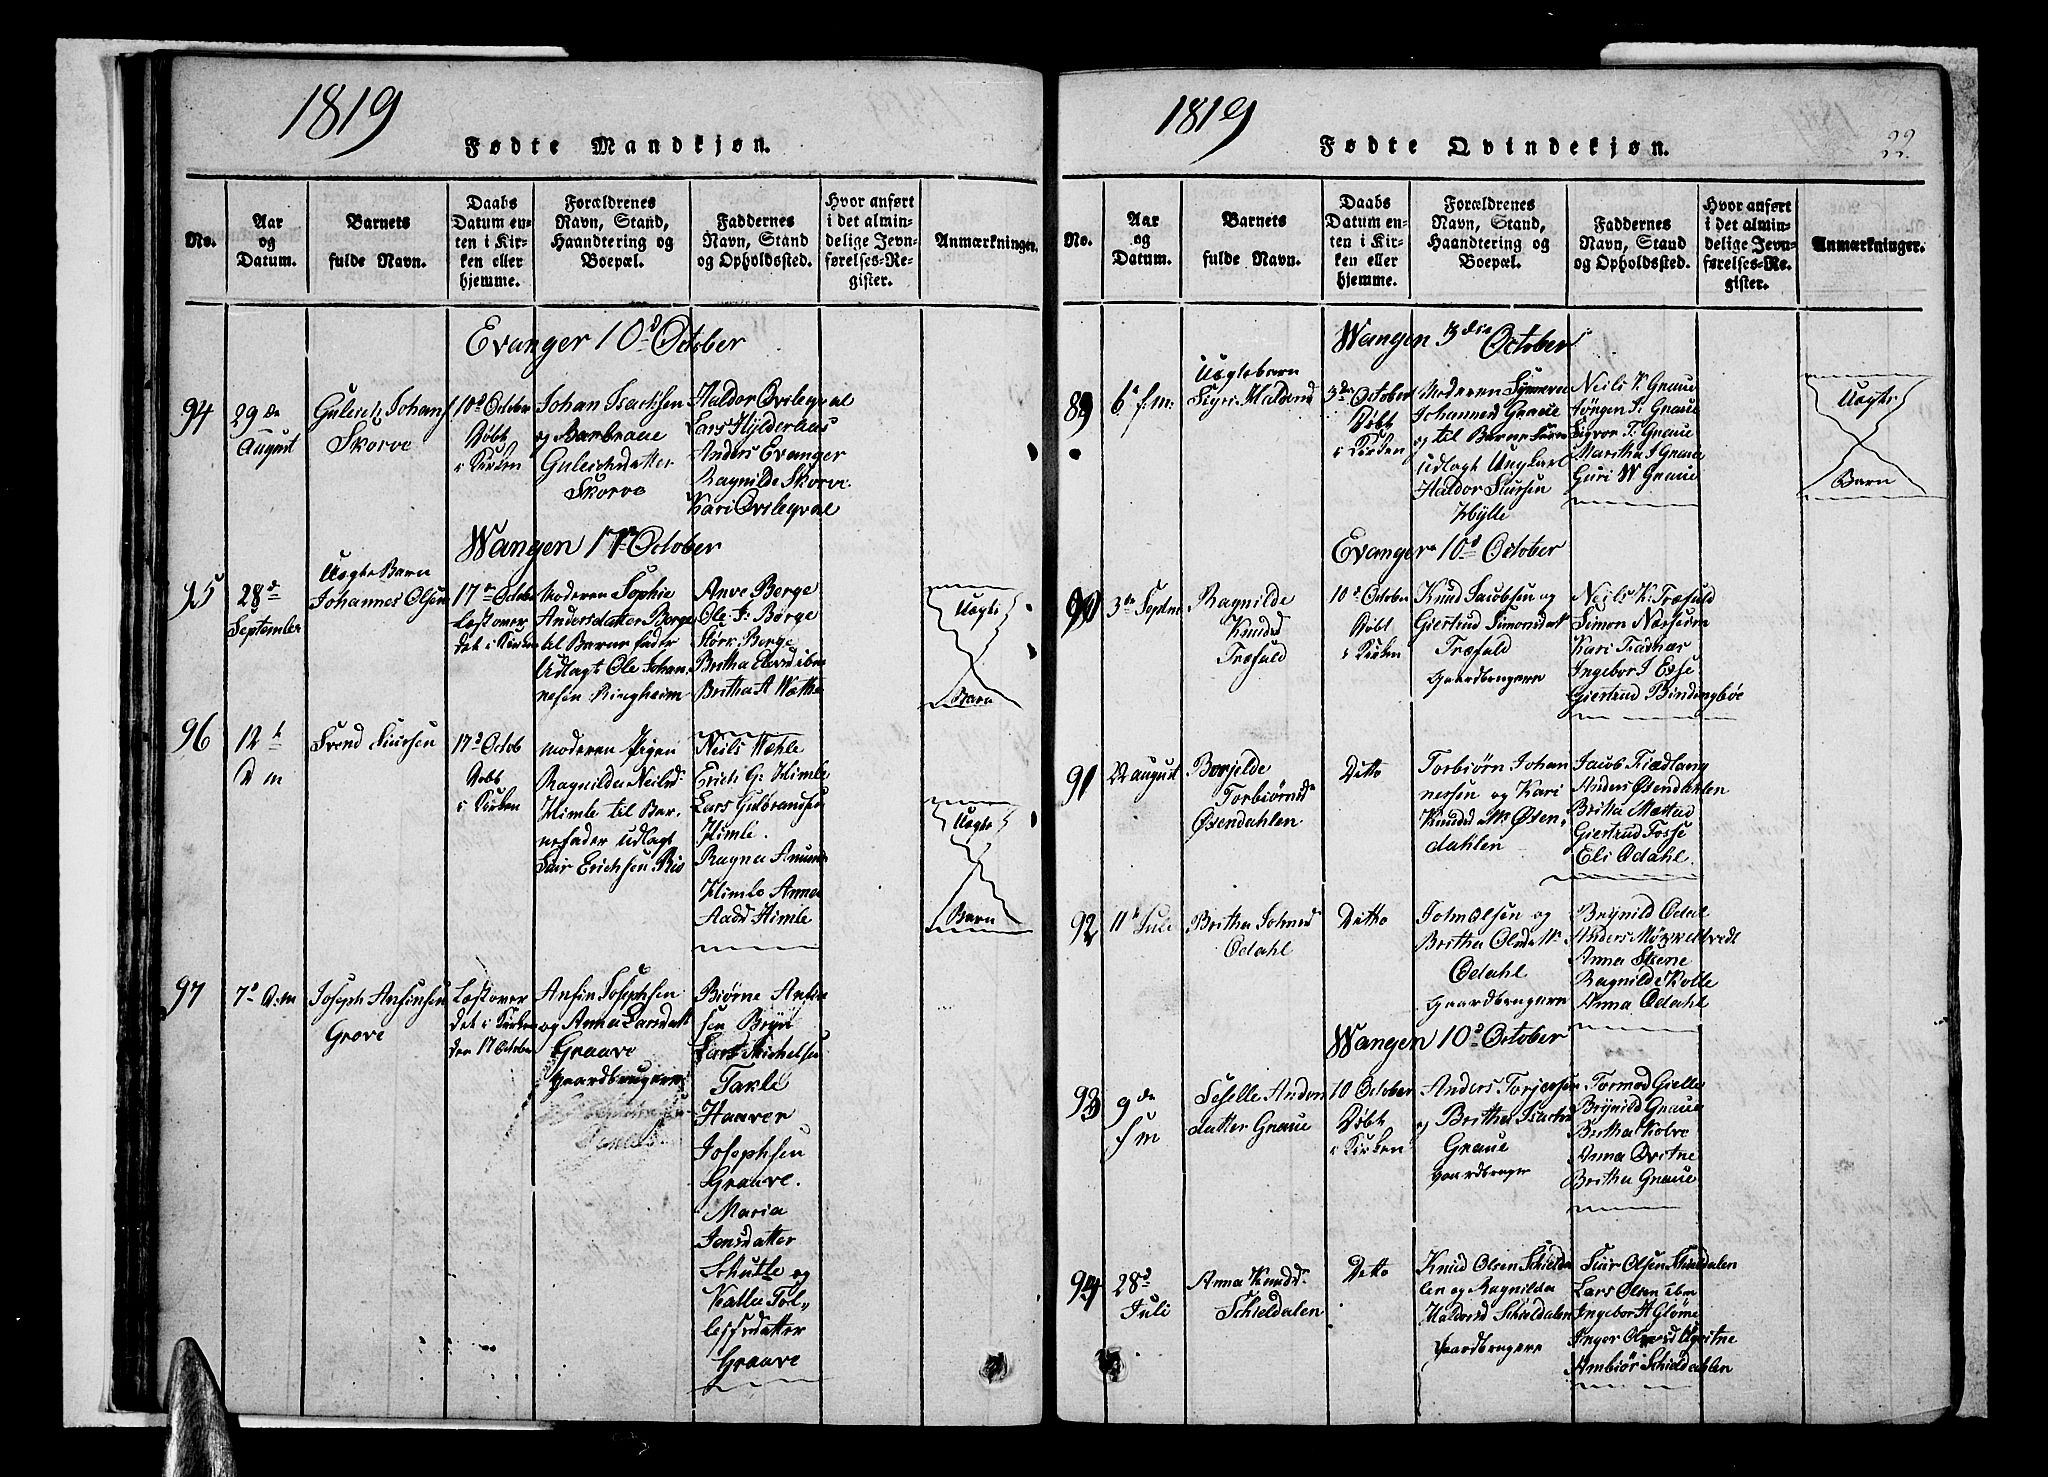 1819
Fødte Mandkjøn.
No.
Aar
og
Datum.
Barnets
fulde Navn.
Daabs
Datum en-
ten i Kir-
ken eller
hjemme.
Forældrenes
Navn, Stand,
Haandtering og
Boepæl.
Faddernes
Navn, Stand
og Opholdssted.
Hvor anført
i det almin-
delige Jevn-
førelses-Re-
gister.
Anmærkninger.
Evanger 10d October
94
29de
August
Guleich Johans
Skorve
10d October
Døbt
i Kirken
Johan Isachsen
og Barbraue
Guleichsdatter
Skorve
Haldor Qvileqval
Lars Hylderhaas
Anders Evanger
Ragnilde Skorve
Kari Qvileqval
Wangen 17d October
95
28d
September
Uægte Barn
Johannes Olsen
17de October
Læst over
det i Kirken
Moderen Sophie
Andersdatter Berge
til Barnefader
Udlagt Ole Johan
nesen Ringheim
Anve Berge
Ole J: Børge
Størk Berge
Britha ibm
Britha A Wæthe
Uægte
Barn
96
12t
D m
Svend Siursen
17d Octob
Døbt
i Kirken
Moderen Pigen
Ragnilda Neilsd
Himle til Bar-
nefader udlagt
Siur Erichsen Rio
Neils Wæhle
Erich G: Himle
Lars Gulbrandsen
Himle.
Ragna Amund
Himle Anna
Aadd Himle
Uægte
Barn
97
7d D:m
Joseph Ansinsen
Grove
Læst over
det i Kirken
den 17 October
Ansin Josephsen
og Anna Larsdatt
Graave
Gaardbrugere
Biørne Ansin
sen Bryn
Lars Michelsen
Takle
Haaver
Josephsen
Graave.
Maria
Jensdatter
Schutte og
Kalla Tol-
lefsdatter
Graave
1819
Fødte Qvindekjøn.
22
No.
Aar
og
Datum.
Barnets
fulde Navn.
Daabs
Datum en-
ten i Kir-
ken eller
hjemme.
Forældrenes
Navn, Stand,
Haandtering og
Boepæl.
Faddernes
Navn, Stand
og Opholdssted.
Hvor anført
i det almin-
delige Jevn-
førelses-Re-
gister.
Anmærkninger.
Wangen 3die October
89
6te f:m:
Uægtebarn
Sigri Haldorsd
3die October
Døbt
i Kirken
Moderen Synneve
Johannesd Graue
og til Barnefader
udlagt Ungkarl
Haldor Siursen
Hylle
Neils K. Graue
Jørgen I: Graue
Sigvor T: Graue
Maritha I Graue
Guri W Graue
Uægte
Barn
Evanger 10d October
90
3de Septem
Ragnilde
Knudsd
Træfald
10d October
Døbt
i Kirken
Knud Jacobsen og
Giertrud Simonsdatt
Træfald
Gaardbrugere
Neils K: Træfald
Simon Næsseim
Kari Fiadnæs
Ingebor J Exse
Giertrud Bindingbøe
91
22 august
Borjilde
Torbiørnsd
Øxendahlen
Ditto
Torbiørn Johan
nessen og Kari
Knudsdatt Øxen-
dahlen
Jacob Fiædlang
Anders Øxendahlen
Britha Mæstad
Giertrud Fosse
Eli Ødahl
92
11t Juli
Britha Johnsd
Ødahl
Ditto
John Olsen og
Britha Olsdatt
Ødahl
Gaardbrugere
Brynild Ødal
Anders Møkkeltvedt
Anna Steene
Ragnilde Kolle
Anna Ødahl
Wangen 10d October
93
9de
f m
Seselle Anders
datter Graue
10 October
Døbt
i Kirken
Anders Torjersen
og Britha Isachsd
Graue
Gaardbruger
Tormod Gielle
Brynild Graue
Britha Kolve
Anna Qvitne
Britha Graue
94
28d
Juli
Anna Knudsd
Schieldalen
Ditto
Knud Olsen Schielda
len og Ragnilda
Haldorsd Schieldalen
Gaardbrugere
Siur Olsen Skieldalen
Lars Olsen ibm
Ingebor A Gløme
Inger Olversd Qvitne
Ambiør Schieldahlen